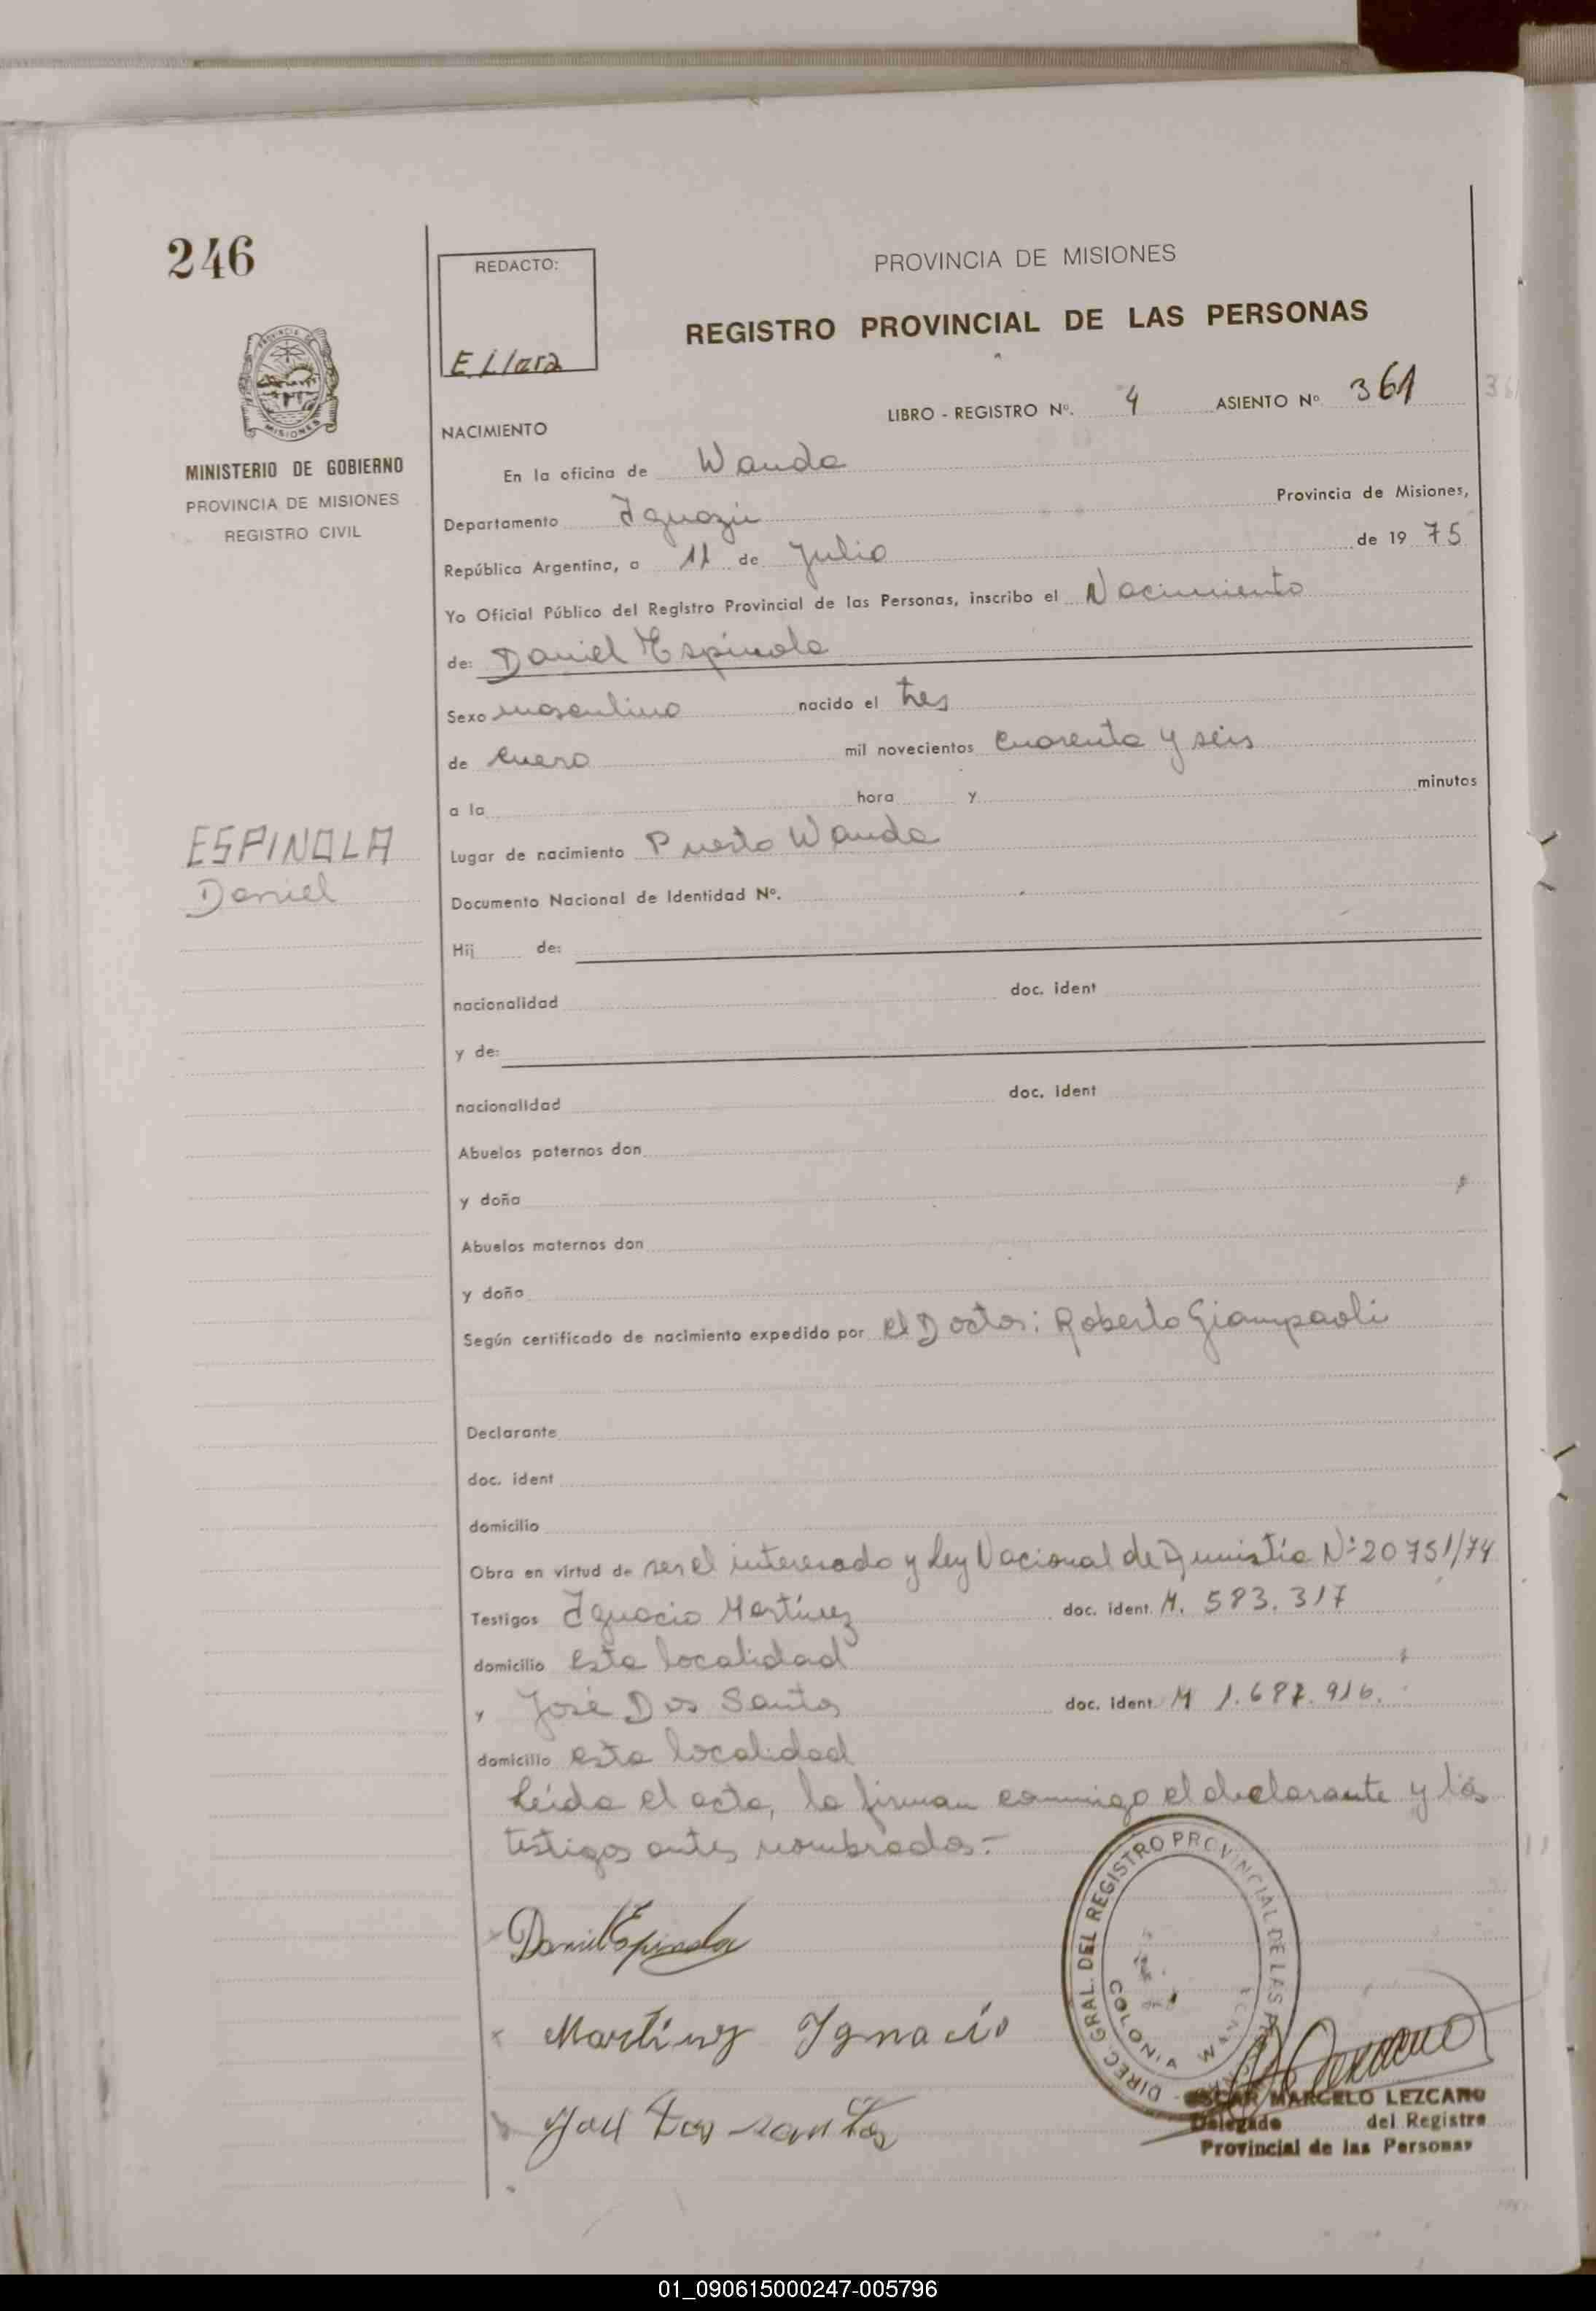 246
REDACTO:
E. Llara
PROVINCIA DE MISIONES
REGISTRO PROVINCIAL DE LAS PERSONAS
PROVINCIA DE MISIONES
MINISTERIO DE GOBIERNO
PROVINCIA DE MISIONES
REGISTRO CIVIL
LIBRO - REGISTRO Nº. 4 ASIENTO Nº 361
NACIMIENTO
En la oficina de Wanda
Departamento Iguazú Provincia de Misiones,
República Argentina, a 11 de Julio de 19 75
Yo Oficial Público del Registro Provincial de las Personas, inscribo el Nacimiento
de: Daniel Espinola
Sexo masculino nacido el tres
de enero mil novecientos cuarenta y seis
a la hora y minutos
ESPINOLA
Daniel
Lugar de nacimiento Puerto Wanda
Documento Nacional de Identidad Nº.
Hij de:
nacionalidad doc. ident
y de:
nacionalidad doc. ident
Abuelos paternos don
y doña
Abuelos maternos don
y doña
Según certificado de nacimiento expedido por el Doctor: Roberto Giampaoli
Declarante
doc. ident
domicilio
Obra en virtud de ser el interesado y Ley Nacional de Amnistia Nº 20751/74
Testigos Ignacio Martínez doc. ident. M. 583.317
domicilio esta localidad
y José Dos Santos doc. ident. M 1.687.916.
domicilio esta localidad
Leída el acta, la firman conmigo el declarante y los
testigos antes nombrados.-
Daniel Espinola
Martinez Ignacio
José Dos santos
DIREC. GRAL. DEL REGISTRO PROVINCIAL DE LAS
COLONIA WANDA
OSCAR MARCELO LEZCANO
Delegado del Registro
Provincial de las Personas
01_090615000247-005796